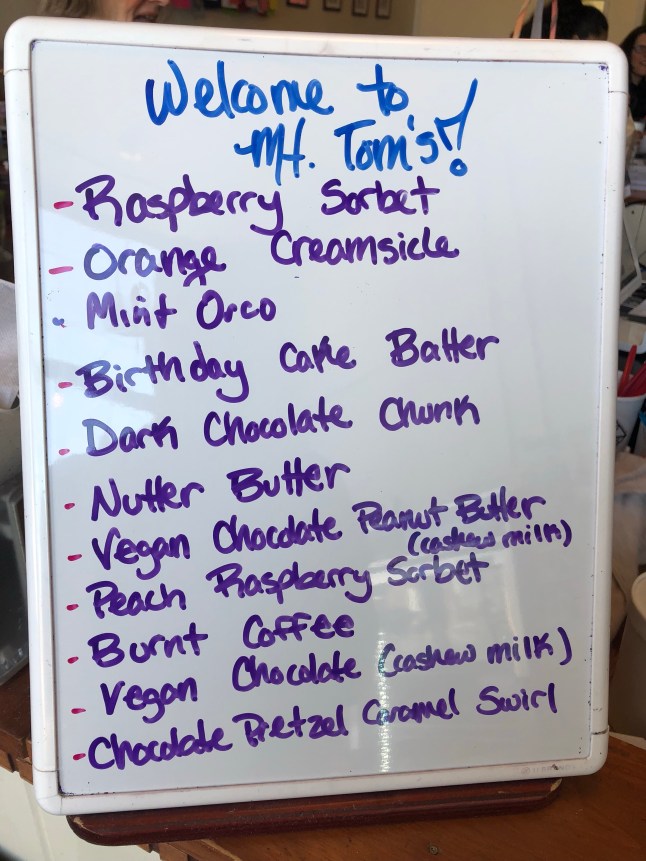 Welcome to
Mt. Tom's!
- Raspberry Sorbet
- Orange Creamsicle
- Mint Oreo
- Birthday Cake Batter
- Dark Chocolate Chunk
- Nutter Butter
- Vegan Chocolate Peanut Butter
(cashew milk)
- Peach Raspberry Sorbet
- Burnt Coffee
- Vegan Chocolate (cashew milk)
- Chocolate Pretzel Caramel Swirl